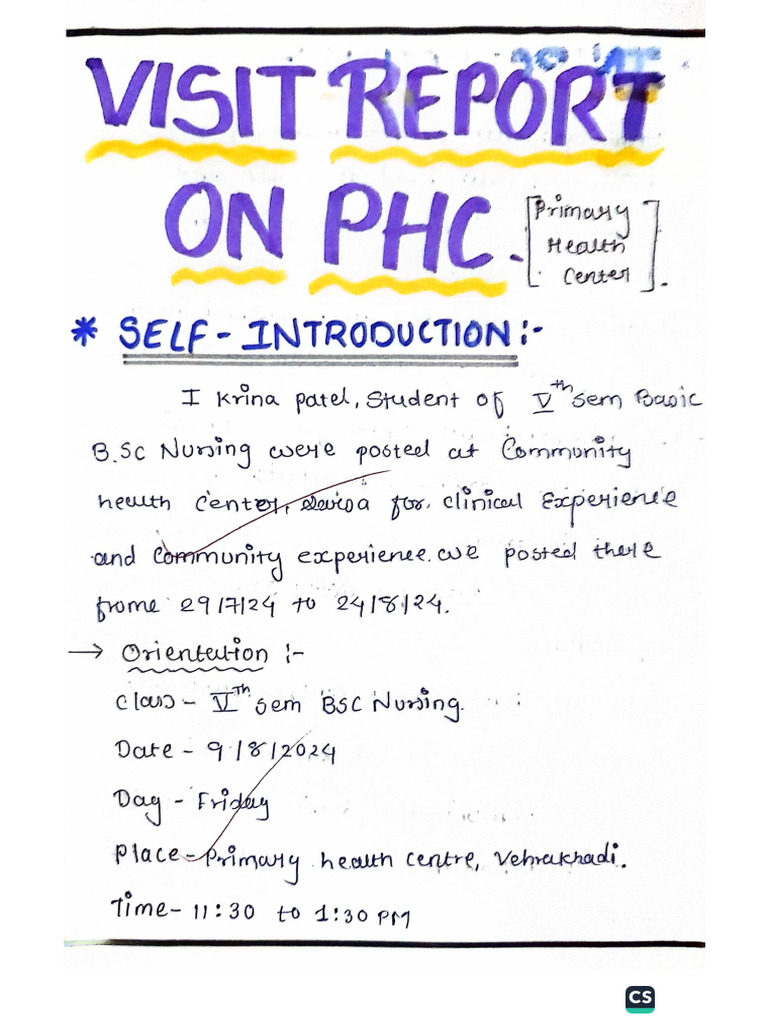 VISIT REPORT
ON PHC. [Primary
Health
Center].
* SELF-INTRODUCTION:-
I Krina patel, Student of Vth sem Basic
B.Sc Nursing were posted at Community
health Center, for clinical Experience
and Community experience. we posted there
frome 29/7/24 to 24/8/24.
→ Orientation :-
Class - Vth sem BSC Nursing.
Date - 9/8/2024
Day - Friday
Place - Primary health centre, Vehrakhadi.
Time - 11:30 to 1:30 PM
CS